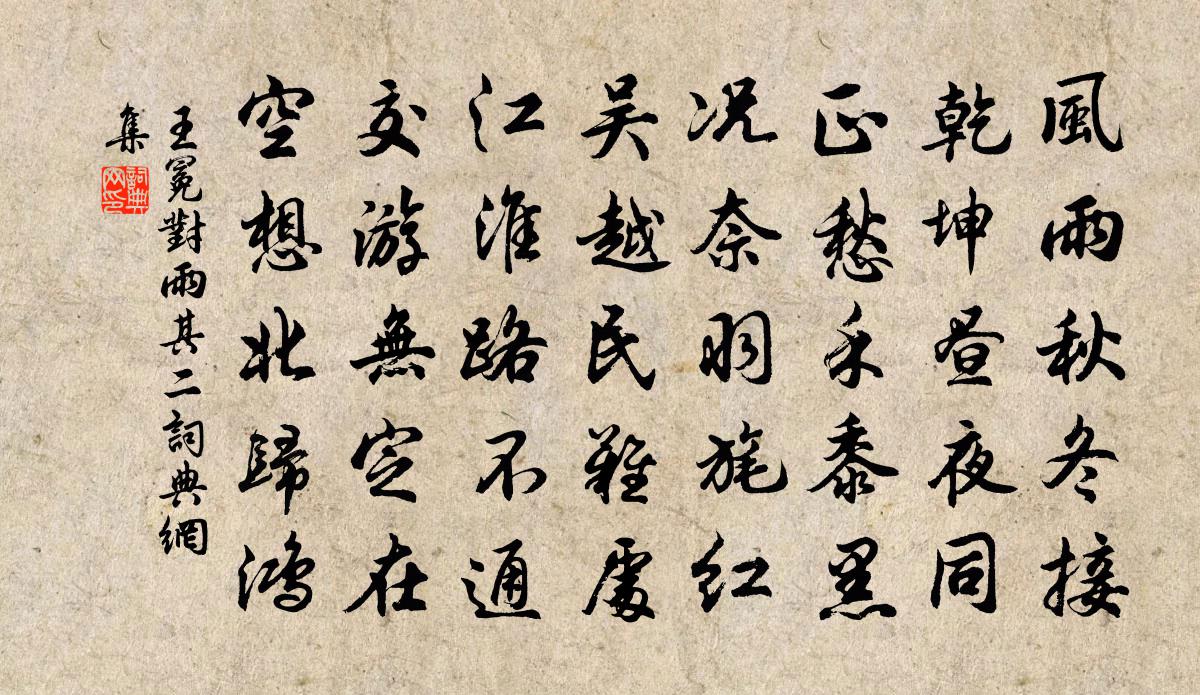 風雨秋冬接
乾坤昼夜同
正愁禾黍黑
况奈羽旄红
吴越民難處
江淮路不通
交游無定在
空想北歸鸿
王冕對雨其二詞典網
集
詞典
网印